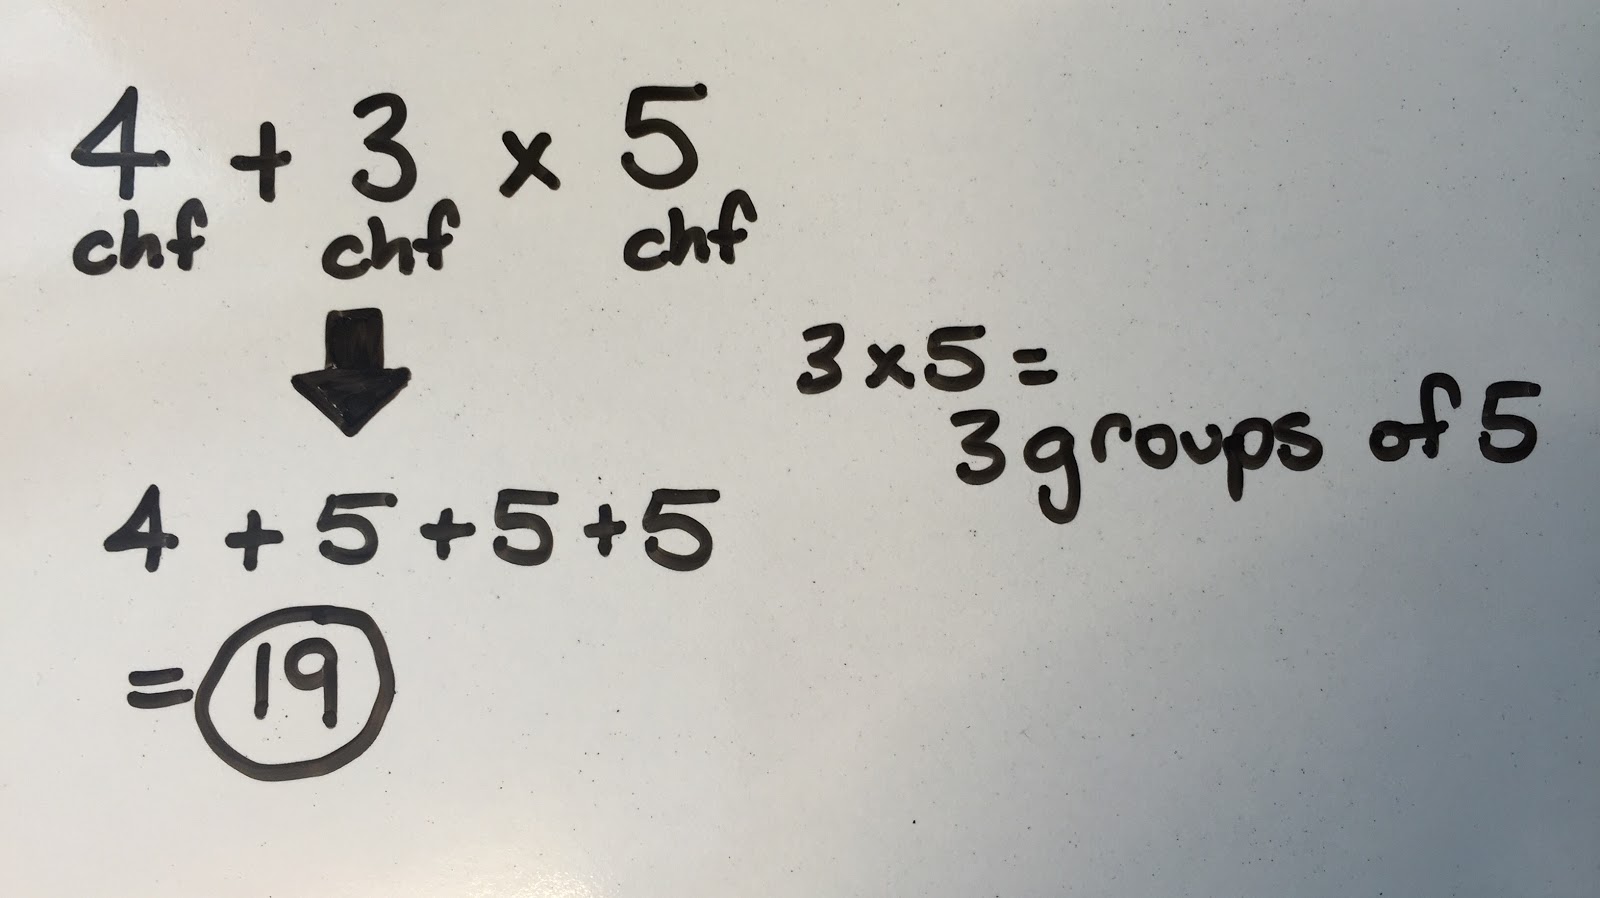 4 + 3 x 5
chf chf chf
3 x 5 =
3 groups of 5
4 + 5 + 5 + 5
= 19